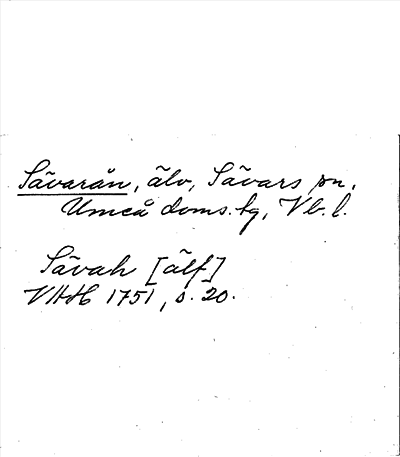 Sävarån, älv, Sävars sn,
Umeå doms.tg, Vb.l.
Sävah [älf]
VAH 1751, s. 20.